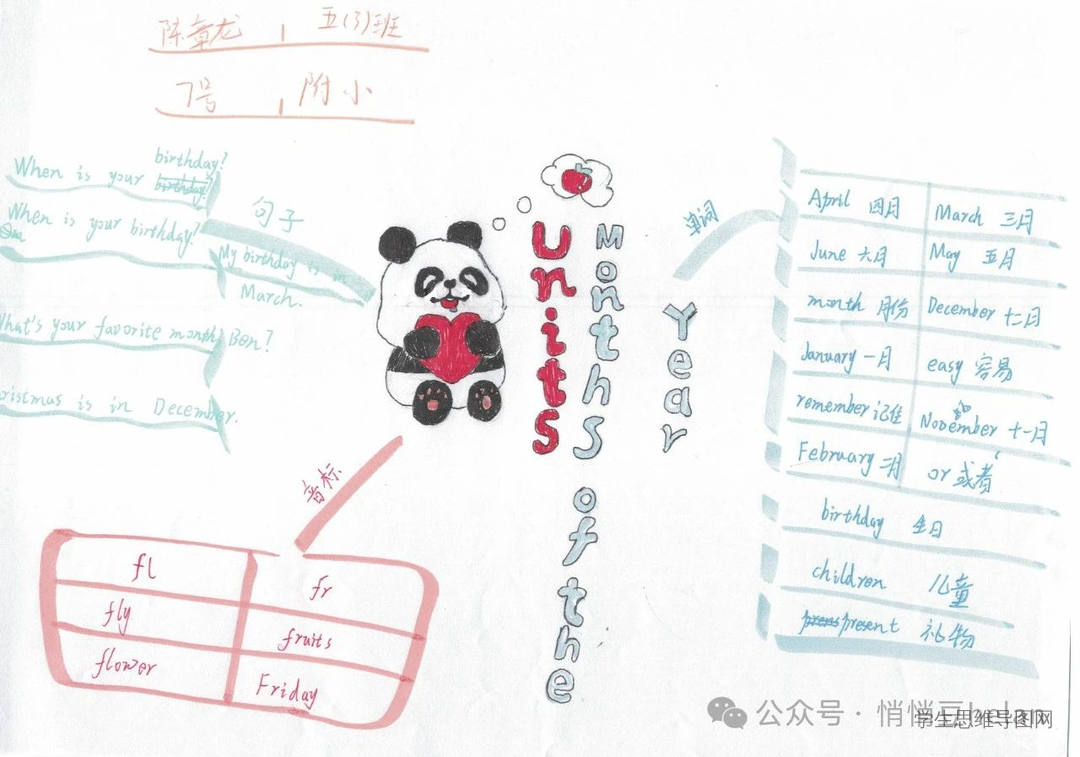 陈章龙 五(3)班
7号 附小
When is your birthday?
birthday?
When is your birthday?
句子
My birthday is in
March.
What's your favorite month, Ben?
ristmas is in December.
Units
Months of the
Year
单词
April 四月 March 三月
June 六月 May 五月
month 月份 December 十二月
January 一月 easy 容易
remember 记住 November 十一月
February 二月 or 或者
birthday 生日
children 儿童
present 礼物
音标
fl fr
fly fruits
flower Friday
公众号 · 悄悄豆
学生思维导图网